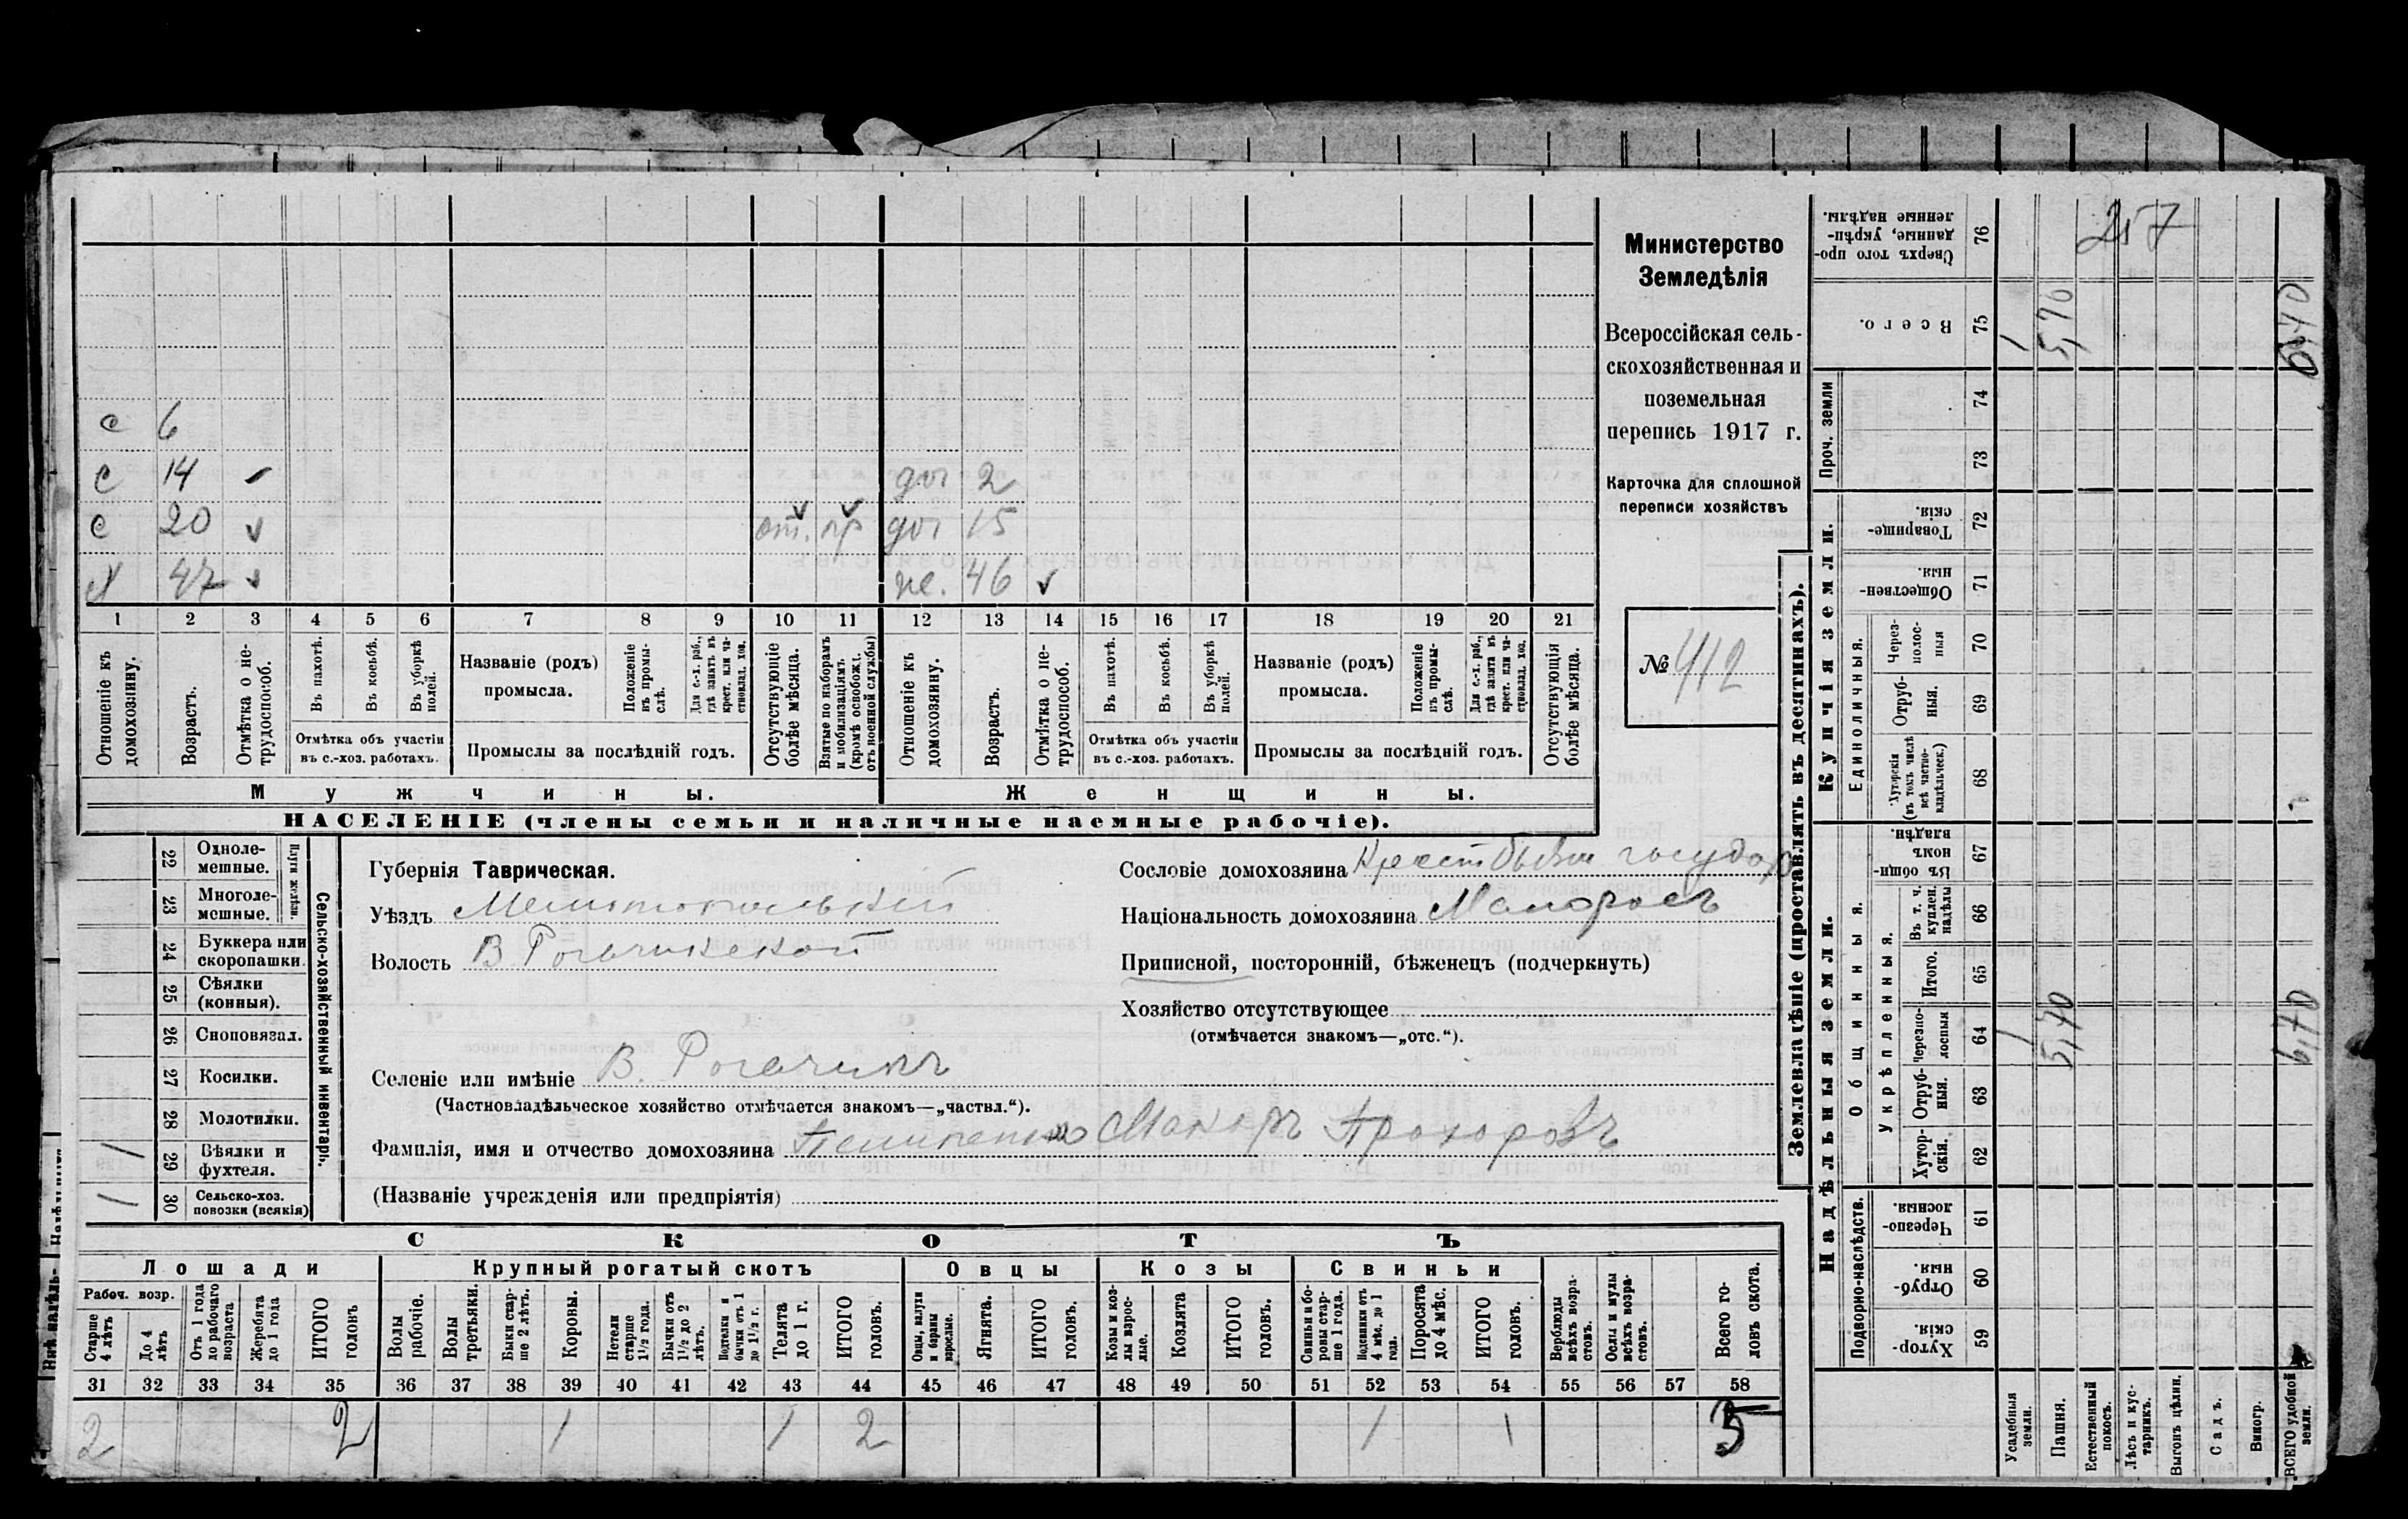 257
Министерство
Земледѣлія
Всероссійская сель-
скохозяйственная и
поземельная
перепись 1917 г.
Карточка для сплошной
переписи хозяйствъ
№ 412
с 6
с 14
дог 2
с 20 от. пр дог 15
х 47 же. 46
1 2 3 4 5 6 7 8 9 10 11 12 13 14 15 16 17 18 19 20 21
Отношеніе къ домохозяину.
Возрастъ.
Отмѣтка о не-трудоспособ.
Въ пахотѣ.
Въ косьбѣ.
Въ уборкѣ полей.
Отмѣтка объ участіи
въ с.-хоз. работахъ.
Названіе (родъ)
промысла.
Положеніе въ промы-слѣ.
Для с.-х. раб., гдѣ занятъ въ крест. или ча-стновлад. хоз.
Промыслы за послѣдній годъ.
Отсутствующіе болѣе мѣсяца.
Взятые по наборамъ и мобилизаціямъ (кромѣ освобожд. отъ военной службы)
Отношеніе къ домохозяину.
Возрастъ.
Отмѣтка о не-трудоспособ.
Въ пахотѣ.
Въ косьбѣ.
Въ уборкѣ полей.
Отмѣтка объ участіи
въ с.-хоз. работахъ.
Названіе (родъ)
промысла.
Положеніе въ промы-слѣ.
Для с.-х. раб., гдѣ занята въ крест. или ча-стновлад. хоз.
Промыслы за послѣдній годъ.
Отсутствующія болѣе мѣсяца.
Мужчины. Женщины.
НАСЕЛЕНІЕ (члены семьи и наличные наемные рабочіе).
Сельско-хозяйственный инвентарь.
Плуги желѣзн.
22 Одноле-мешные.
23 Многоле-мешные.
24 Буккера или скоропашки.
25 Сѣялки (конныя).
26 Сноповязал.
27 Косилки.
28 Молотилки.
29 Вѣялки и фухтеля. 1
30 Сельско-хоз. повозки (всякія) 1
Губернія Таврическая.
Уѣздъ Мелитопольскій
Волость В Рогачикской
Сословіе домохозяина Крест бывш государ
Національность домохозяина Малоросъ
Приписной, посторонній, бѣженецъ (подчеркнуть)
Хозяйство отсутствующее
(отмѣчается знакомъ—„отс.“).
Селеніе или имѣніе В. Рогачикъ
(Частновладѣльческое хозяйство отмѣчается знакомъ—„частвл.“).
Фамилія, имя и отчество домохозяина Макаръ Прохоровъ
(Названіе учрежденія или предпріятія)
СКОТЪ
Лошади Крупный рогатый скотъ Овцы Козы Свиньи
Рабоч. возр.
Старше 4 лѣтъ
До 4 лѣтъ
Отъ 1 года до рабочаго возраста
Жеребята до 1 года
ИТОГО головъ
Волы рабочіе.
Волы третьяки.
Быки стар-ше 2 лѣтъ.
Коровы.
Нетели старше 1½ года.
Бычки отъ 1½ до 2 лѣтъ.
Подтелки и бычки отъ 1 до 1½ г.
Телята до 1 г.
ИТОГО головъ.
Овцы, валухи и бараны взрослые.
Ягнята.
ИТОГО головъ.
Козы и коз-лы взрос-лые.
Козлята
ИТОГО головъ.
Свиньи и бо-ровы стар-ше 1 года.
Подсвинки отъ 4 мѣс. до 1 года.
Поросята до 4 мѣс.
ИТОГО головъ.
Верблюды всѣхъ возра-стовъ.
Ослы и мулы всѣхъ возра-стовъ.
Всего го-ловъ скота.
31 32 33 34 35 36 37 38 39 40 41 42 43 44 45 46 47 48 49 50 51 52 53 54 55 56 57 58
2 2 1 1 2 1 1 5
Землевладѣніе (проставлять въ десятинахъ).
Надѣльныя земли. Купчія земли.
Подворно-наслѣдств.
Общинныя.
Укрѣпленныя.
Единоличныя.
Проч. земли
59 Хутор-скія.
60 Отруб-ныя.
61 Черезпо-лосныя.
62 Хутор-скія.
63 Отруб-ныя.
64 Черезпо-лосныя 1 5,70 6,70
65 Итого.
66 Въ т. ч. куплен. надѣлы
67 Въ общин-номъ владѣн.
68 Хуторскія (въ томъ числѣ всѣ частно-владѣльческ.)
69 Отруб-ныя.
70 Через-полос-ныя
71 Обществен-ныя.
72 Товарище-скія.
73
74
75 Всего. 1 5,70 6,70
76 Сверхъ того про-данные, укрѣп-ленные надѣлы.
Усадебныя земли.
Пашня.
Естественный покосъ.
Лѣсъ и кус-тарникъ.
Выгонъ цѣлин.
Садъ.
Виногр.
ВСЕГО удобной земли.